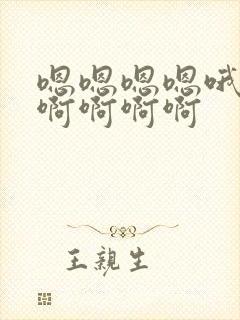 嗯嗯嗯嗯哦
啊啊啊啊
王親生